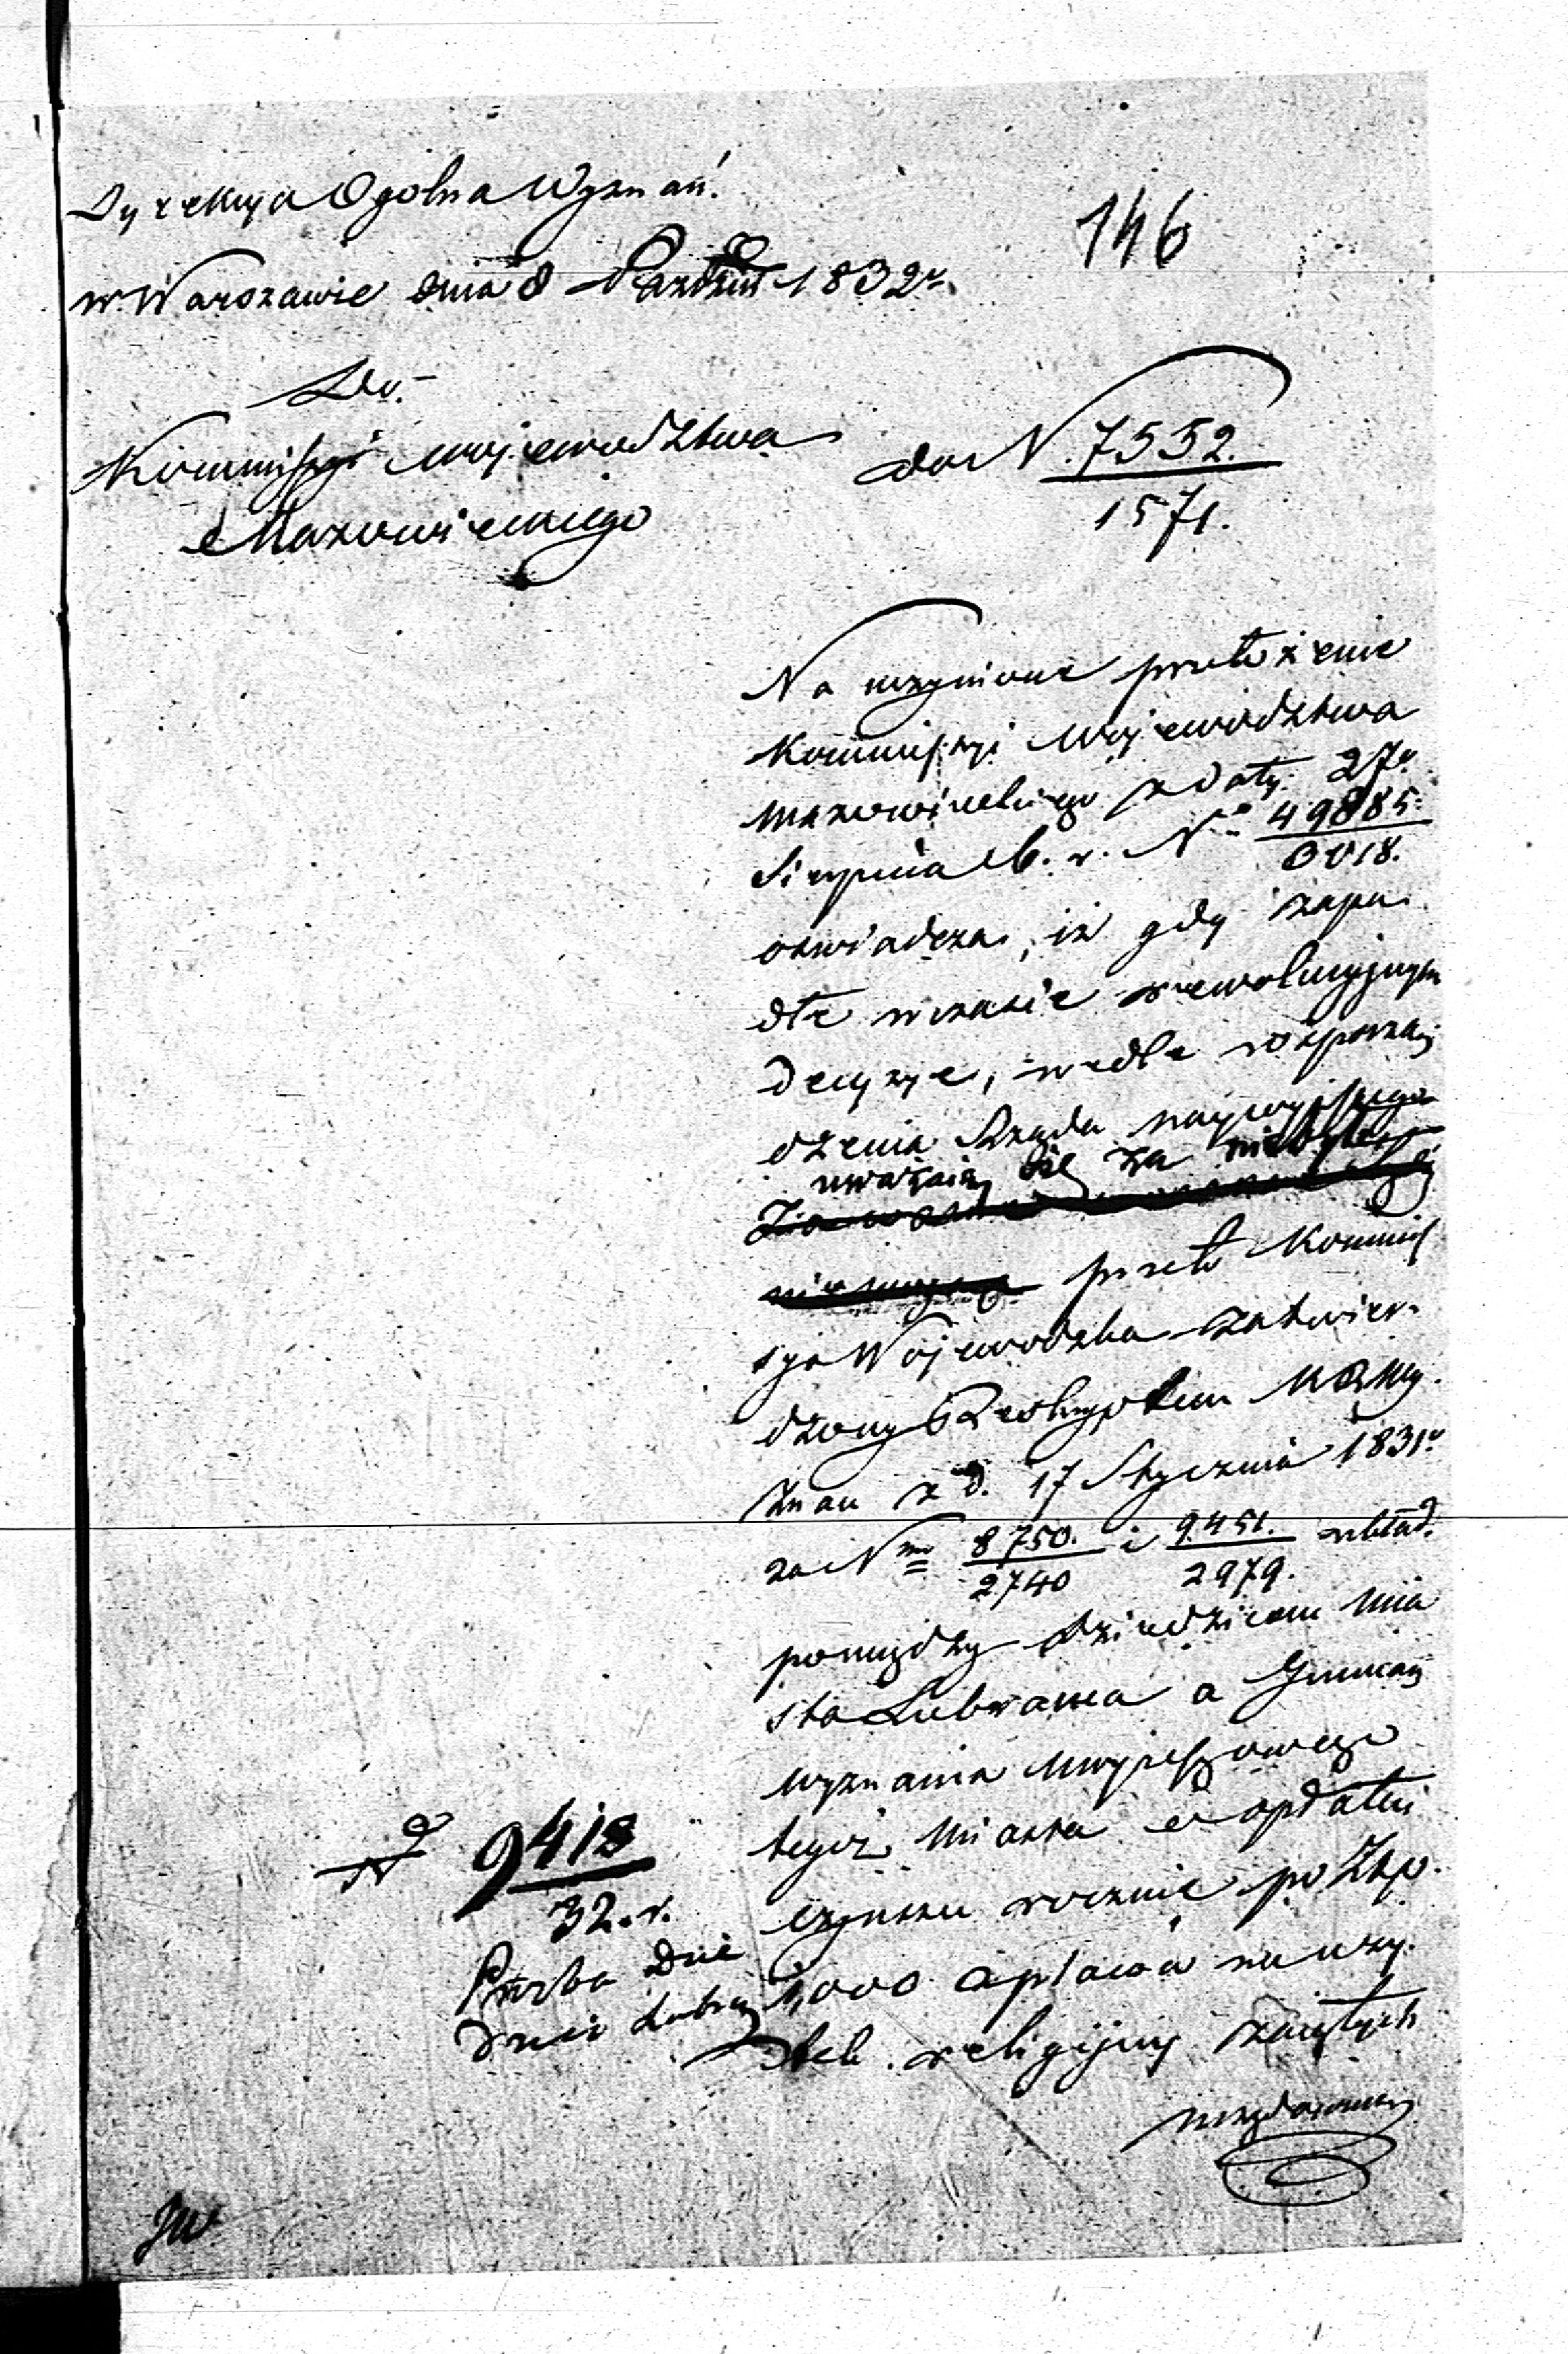 Dyrekcya Ogolna Wyznań.
146
w Warszawie dnia 8 Pazdzier 1832 r
Do
Kommissyi Województwa
Mazowieckiego
do N. 7552.
1571.
Na uczynione przełożenie
Kommissyi Województwa
Mazowieckiego z daty 27o
Sierpnia b. r. No 49885.
3018.
oswiadcza, iż gdy zapa-
dłe w czasie rewolucyjnym
decyzye, wedle rozporzą-
dzenia Rządu naywyższego
uważaią się za niebyłe,
przeto Kommis
sya Wojewodzka zatwier-
dzony Reskryptem
Znań z d. 17 Stycznia 1831 r
za Nmi 8750. i 9451. układ
2740 2979.
pomiędzy dziedzicem Mia
sta Lubrańca a Gminą
wyznania Moyżeszowego
tegoż Miasta o opłatę
czynszu rocznie po Złp.
1,000 z placów na uży-
tek religijny zaiętych
N 9418
32. r.
Prośba Dzie
dzica Lubrań
JW